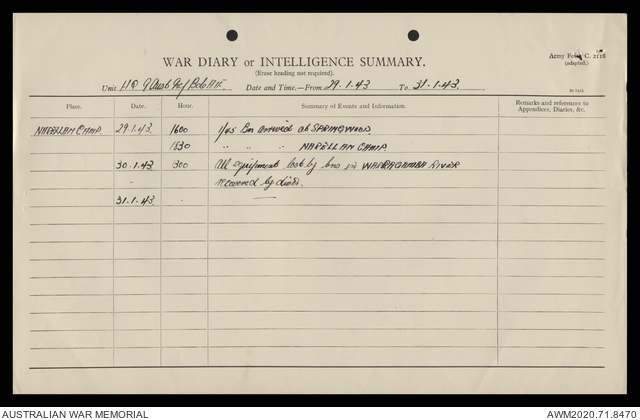 WAR DIARY or INTELLIGENCE SUMMARY.
Army Form C. 2118
(adapted.)
(Erase heading not required).
Unit HQ 9 Aust Inf Bde Date and Time.—From 29.1.43 To 31.1.43.
Place. Date. Hour. Summary of Events and Information. Remarks and references to Appendices, Diaries, &c.
NARELLAN CAMP. 29.1.43. 1600 1/45 Bn arrived at SPRINGWOOD.
1830 " " " NARELLAN CAMP.
30.1.43. 1300 All equipment lost by bns in WARRAGAMBA RIVER
" recovered by divers.
31.1.43. —
AUSTRALIAN WAR MEMORIAL AWM2020.71.8470